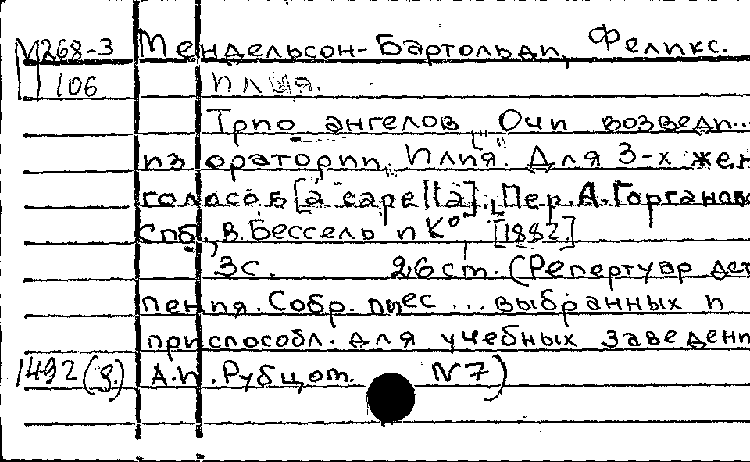 М268-3 Мендельсон-Бартольди, Феликс.
106 Илия.
Трио ангелов „Очи возведи...
из оратории „Илия". Для 3-х жен
голосов [a capella]. Пер. А. Горчаков
Спб., В. Бессель и К°, [1882.]
3с. 26 cm. (Репертуар дет
пения. Собр. пиес ... выбранных и
приспособл. для учебных заведени
1492(3.) А.И. Рубцом. N7)